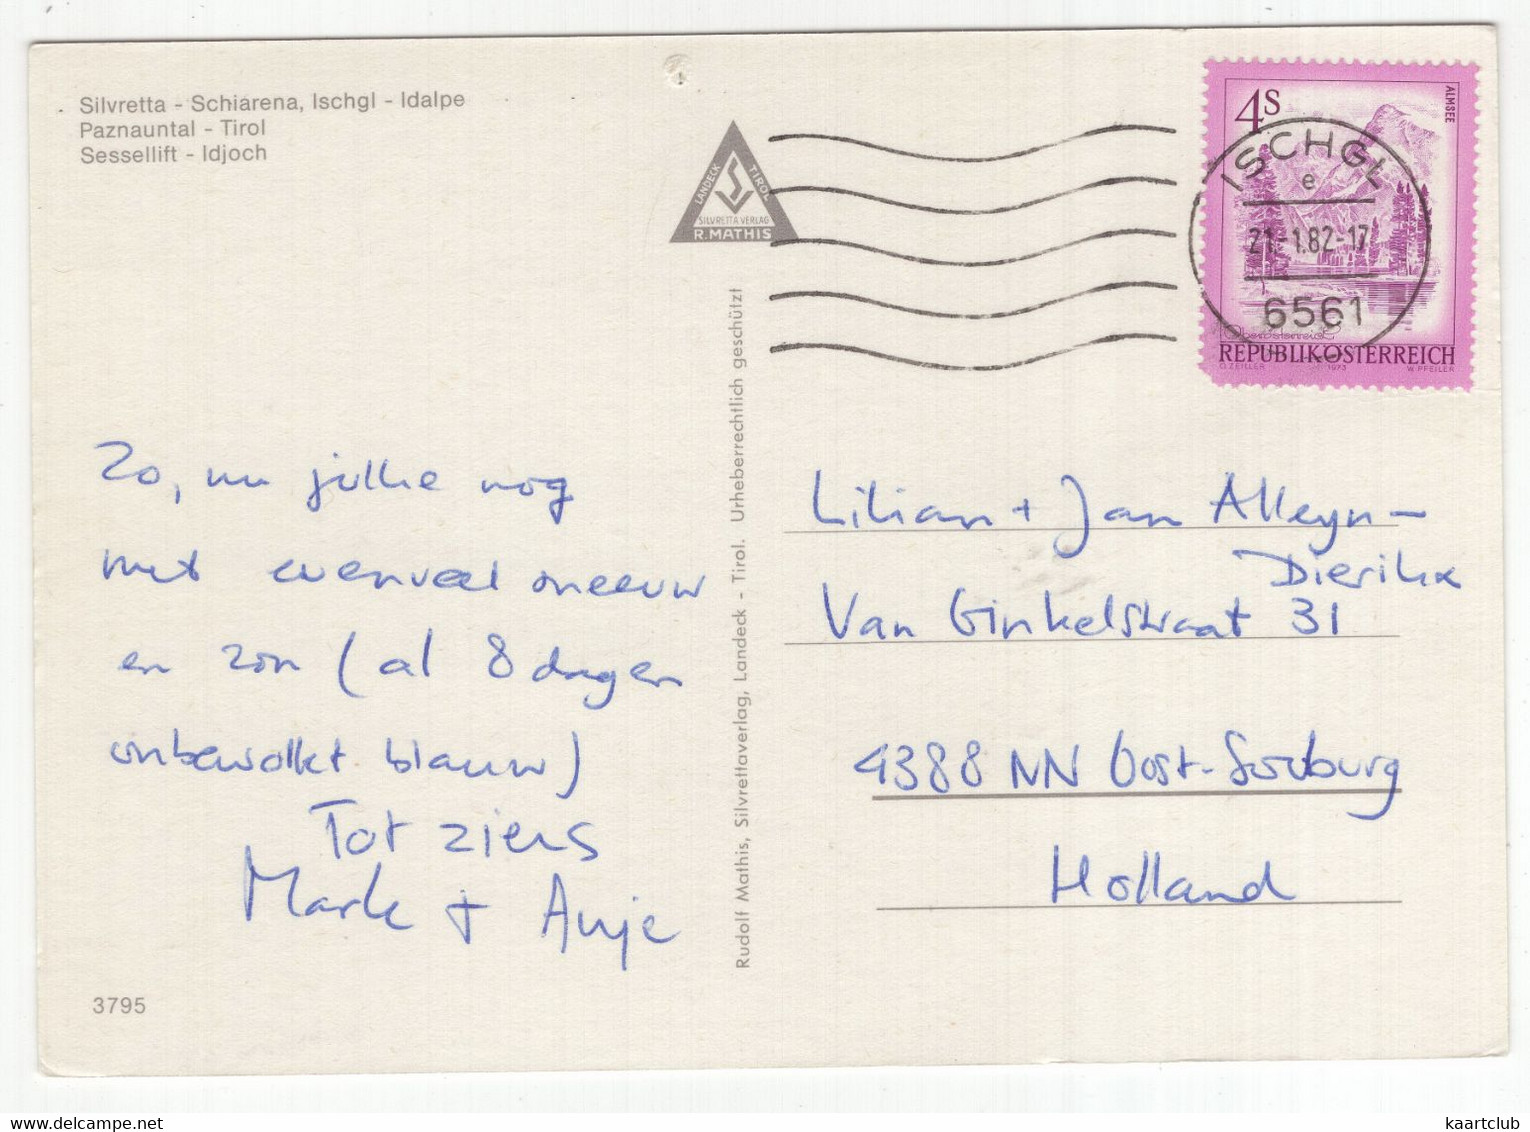 Silvretta - Schiarena, Ischgl - Idalpe
Paznauntal - Tirol
Sessellift - Idjoch
LANDECK TIROL
SILVRETTA VERLAG
R. MATHIS
4S
ALMSEE
ISCHGL
e
21.-1.82-17
6561
Oberösterreich
REPUBLIK ÖSTERREICH
O. ZEILLER 1973 W. PFEILER
Zo, nu jullie nog
met evenveel sneeuw
en zon (al 8 dagen
onbewolkt blauw)
Tot ziens
Mark + Anje
3795
Rudolf Mathis, Silvrettaverlag, Landeck - Tirol. Urheberrechtlich geschützt
Lilian + Jan Alleyn-
Dierikx
Van Ginkelstraat 31
4388 NN Oost-Souburg
Holland
kaartclub